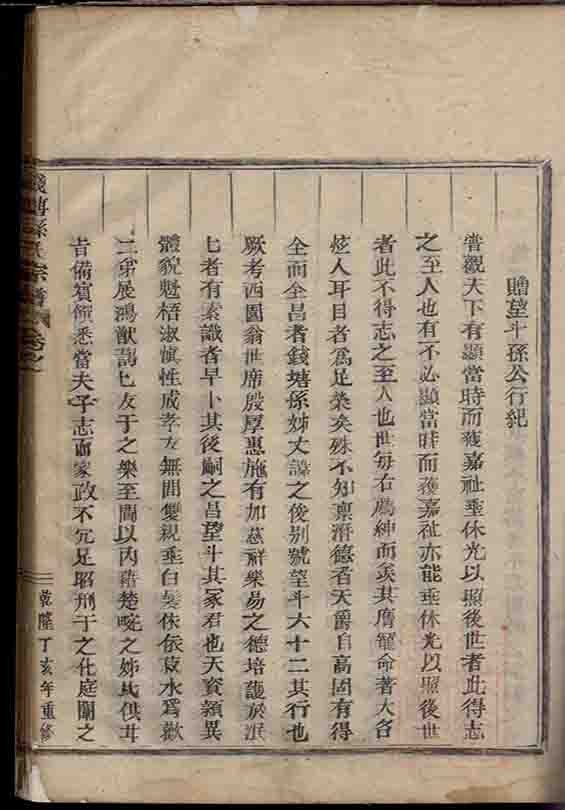 贈望斗孫公行紀
嘗觀天下有顯當時而獲嘉祉垂休光以照後世者此得志
之至人也有不必顯當時而獲嘉祉亦能垂休光以照後世
者此不得志之至人也世每右薦紳而羨其膺寵命著大名
炫人耳目者為足榮矣殊不知禀潛德者天爵自高固有得
全而全昌者錢塘孫姊丈諱之俊別號望斗六十二其行也
厥考西園翁世席殷厚惠施有加慈祥樂易之德培護於泯
七者有素識者早卜其後嗣之昌望斗其冢君也天資穎異
體貌魁梧淑慎性成孝友無間雙親垂白髮休依菽水為歡
二弟展鴻猷謁匕友于之樂至閫以内藉楚畹之姊氏供甘
旨備賓饌悉當夫子志而家政不冗足昭刑于之化庭闈之
乾隆丁亥年重修
孫氏宗譜